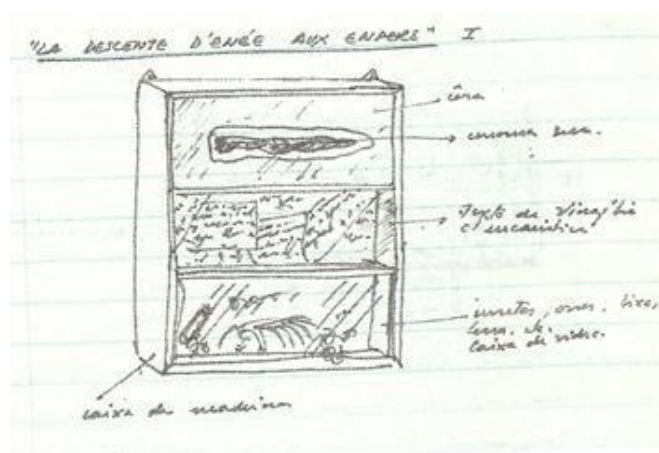 "LA DESCENTE D'ENÉE AUX ENFERS" I
cêra
cenoura seca.
Texto de Virgílio
e encaustica
insetos, ossos, lixo,
caixa de vidro.
caixa de madeira